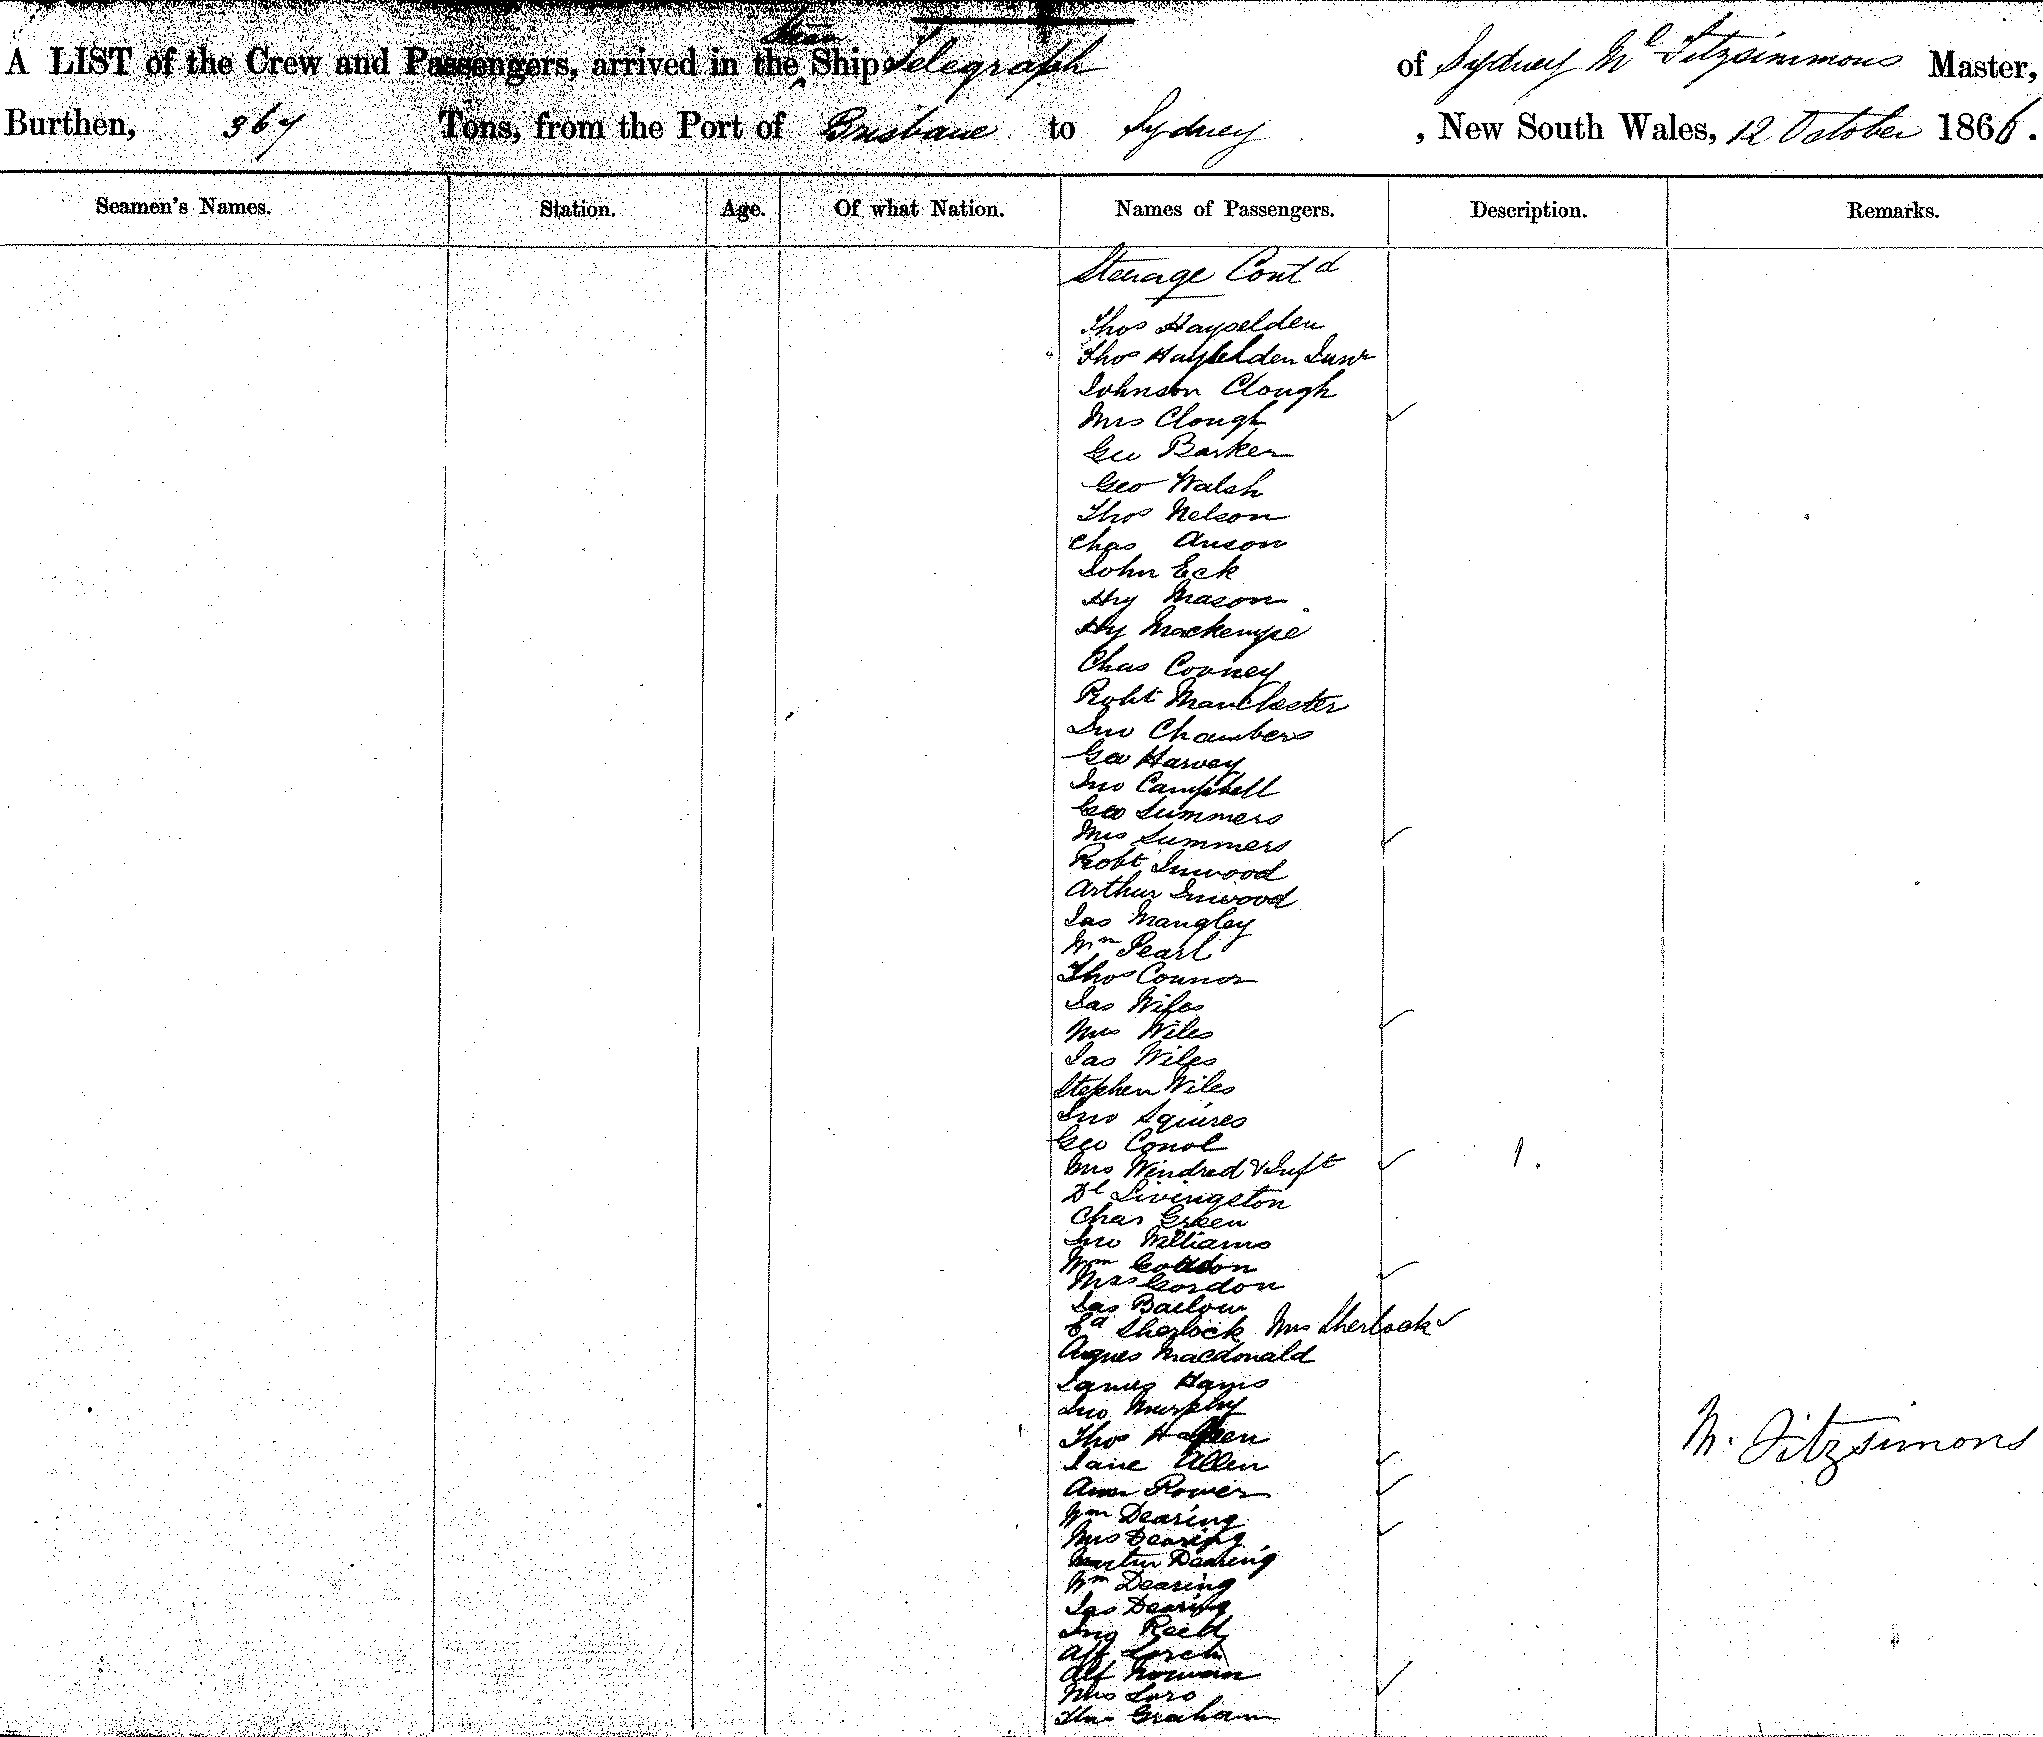 A LIST of the Crew and Passengers, arrived in the Ship Telegraph of Sydney Ml Fitzsimmons Master,
Burthen, 367 Tons, from the Port of Brisbane to Sydney , New South Wales, 12 October 1866.
Seamen's Names. Station. Age. Of what Nation. Names of Passengers. Description. Remarks.
Steerage Contd
Thos Hayselden
Thos Hayselden Junr
Johnson Clough
Mrs Clough
Geo Barker
Geo Walsh
Thos Nelson
Chas Anson
John Eck
Hy Mason
Hy Mackenzie
Chas Cooney
Robt Manchester
Jno Chambers
Geo Harvey
Jno Campbell
Geo Summers
Mrs Summers
Robt Inwood
Arthur Inwood
Jas Mangley
Wm Pearl
Thos Connor
Jas Wiles
Mrs Wiles
Jas Wiles
Stephen Wiles
Jno Squires
Geo Conol
Mrs Windred & Inft 1.
Dl Livingston
Chas Green
Jno Williams
Wm Gordon
Mrs Gordon
Jas Barlow
Ed Sherlock Mrs Sherlock
Agnes Macdonald
James Hays
Jno Murphy
Thos
Jane Allen
Ann Power
M. Fitzsimons
Wm Dearing
Mrs Dearing
Martin Dearing
Wm Dearing
Jas Dearing
Jno Reed
Alf
Alf Norman
Mrs
Graham